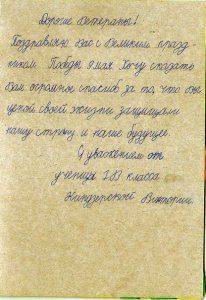 Дорогие Ветераны!
Поздравляю Вас с Великим празд-
ником Победы 9 мая. Хочу сказать
Вам огромное спасибо за то, что вы
ценой своей жизни защищали
нашу страну и наше будущее.
С уважением от
ученицы 2 класса
Виктории.